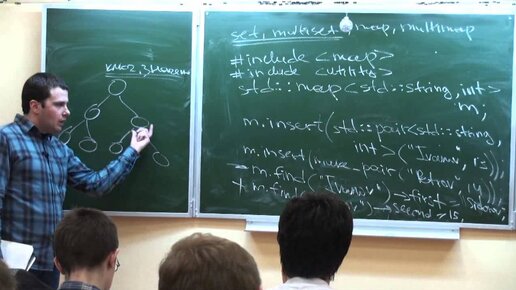 ключ, значение
set, multiset map, multimap
#include <map>
#include <utility>
std::map<std::string, int>
m;
m.insert(std::pair<std::string,
int>("Ivanov",
m.insert(make_pair("Petrov", 14)
m.find("Ivanov")->first =
m.find(")->second = 15;